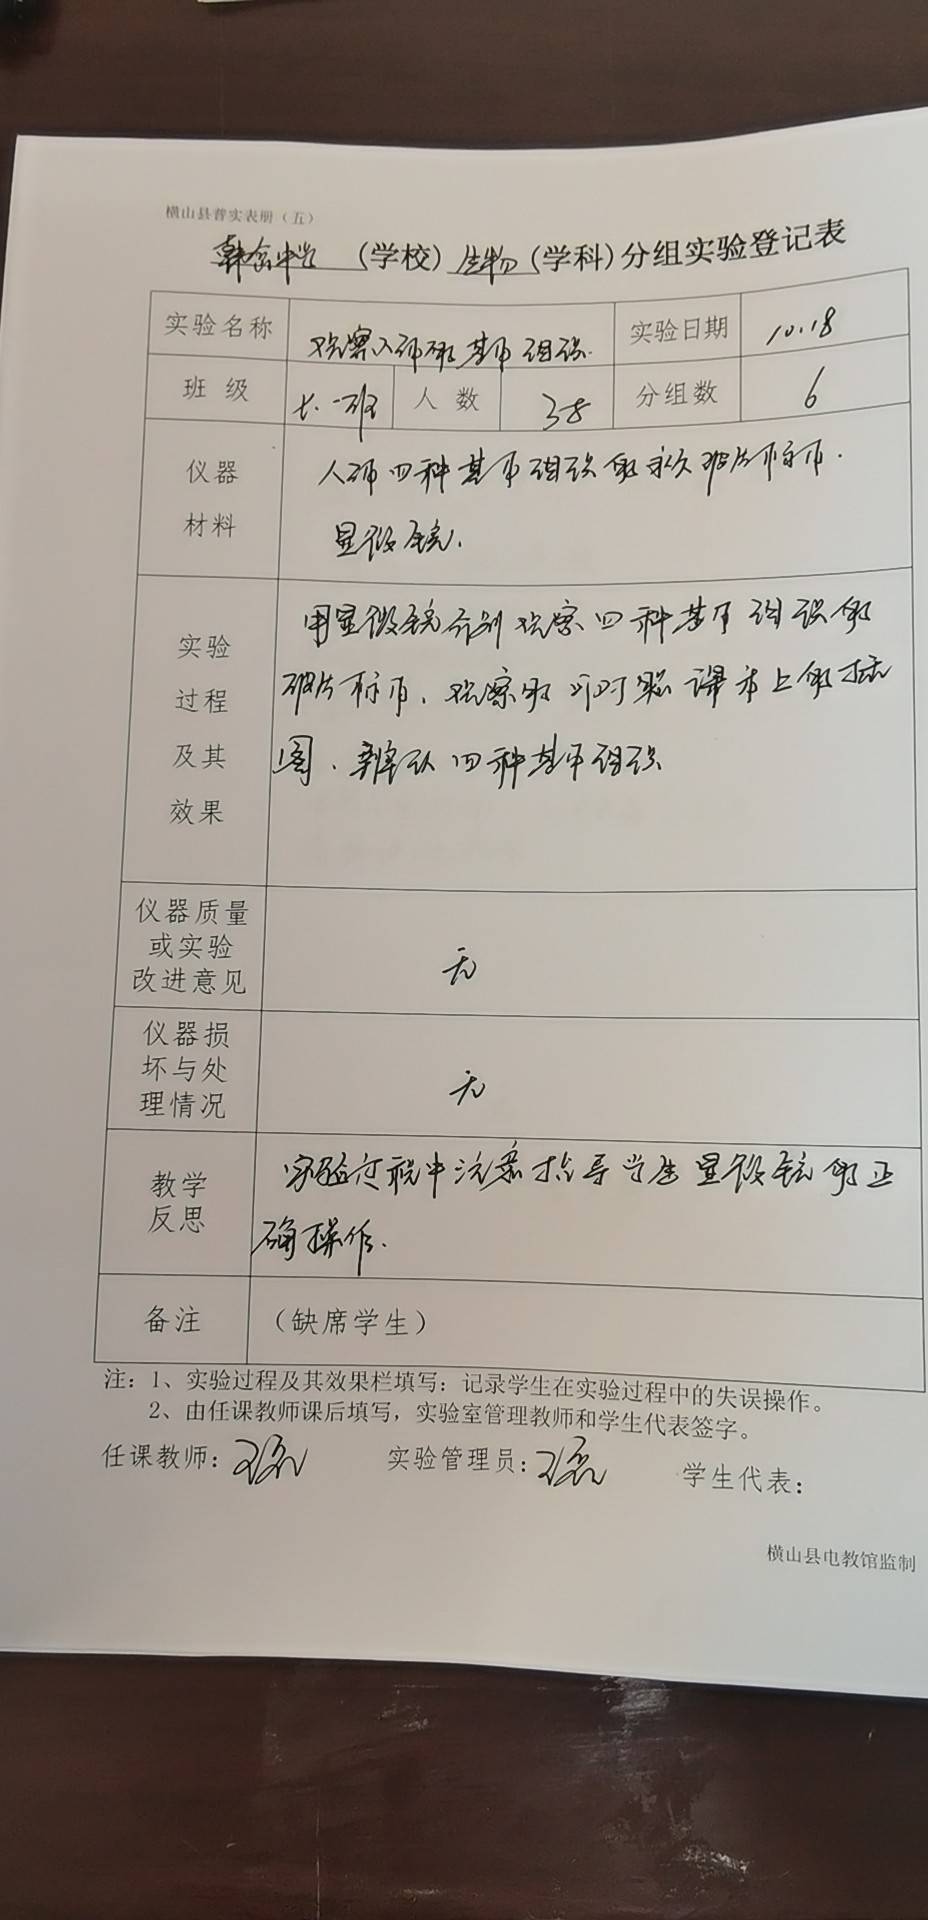 横山县普实表册（五）
韩岔中学（学校）生物（学科）分组实验登记表
实验名称 观察人体的基本组织. 实验日期 10.18
班 级 七.一班 人 数 38 分组数 6
仪器 人体四种基本组织的永久玻片标本.
材料 显微镜.
实验 用显微镜分别观察四种基本组织的
过程 玻片标本、观察时可对照课本上的插
及其 图、辨认四种基本组织
效果
仪器质量
或实验 无
改进意见
仪器损
坏与处 无
理情况
教学 实验过程中注意指导学生显微镜的正
反思 确操作.
备注 （缺席学生）
注：1、实验过程及其效果栏填写：记录学生在实验过程中的失误操作。
2、由任课教师课后填写，实验室管理教师和学生代表签字。
任课教师： 实验管理员： 学生代表：
横山县电教馆监制